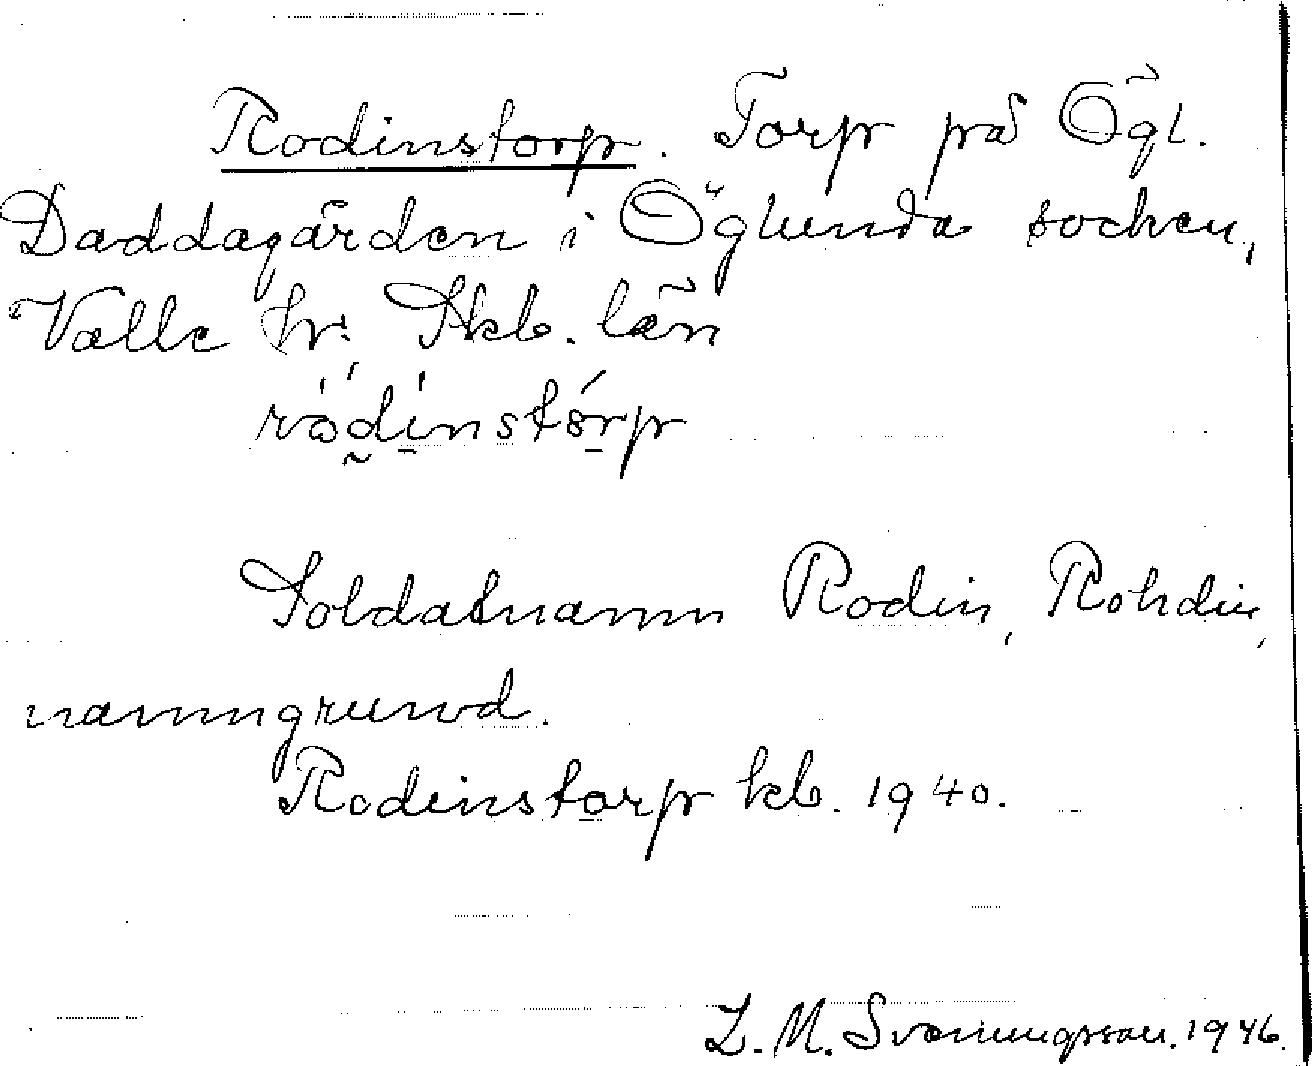 Rodinstorp. Torp på Ögl.
Daddagården i Öglunda socken,
Valle hd. Skb. län
rödinstórp
Soldatnamn Rodin, Rohdin,
namngrund.
Rodinstorp kb. 1940.
L. M. Svenungsson. 1946.